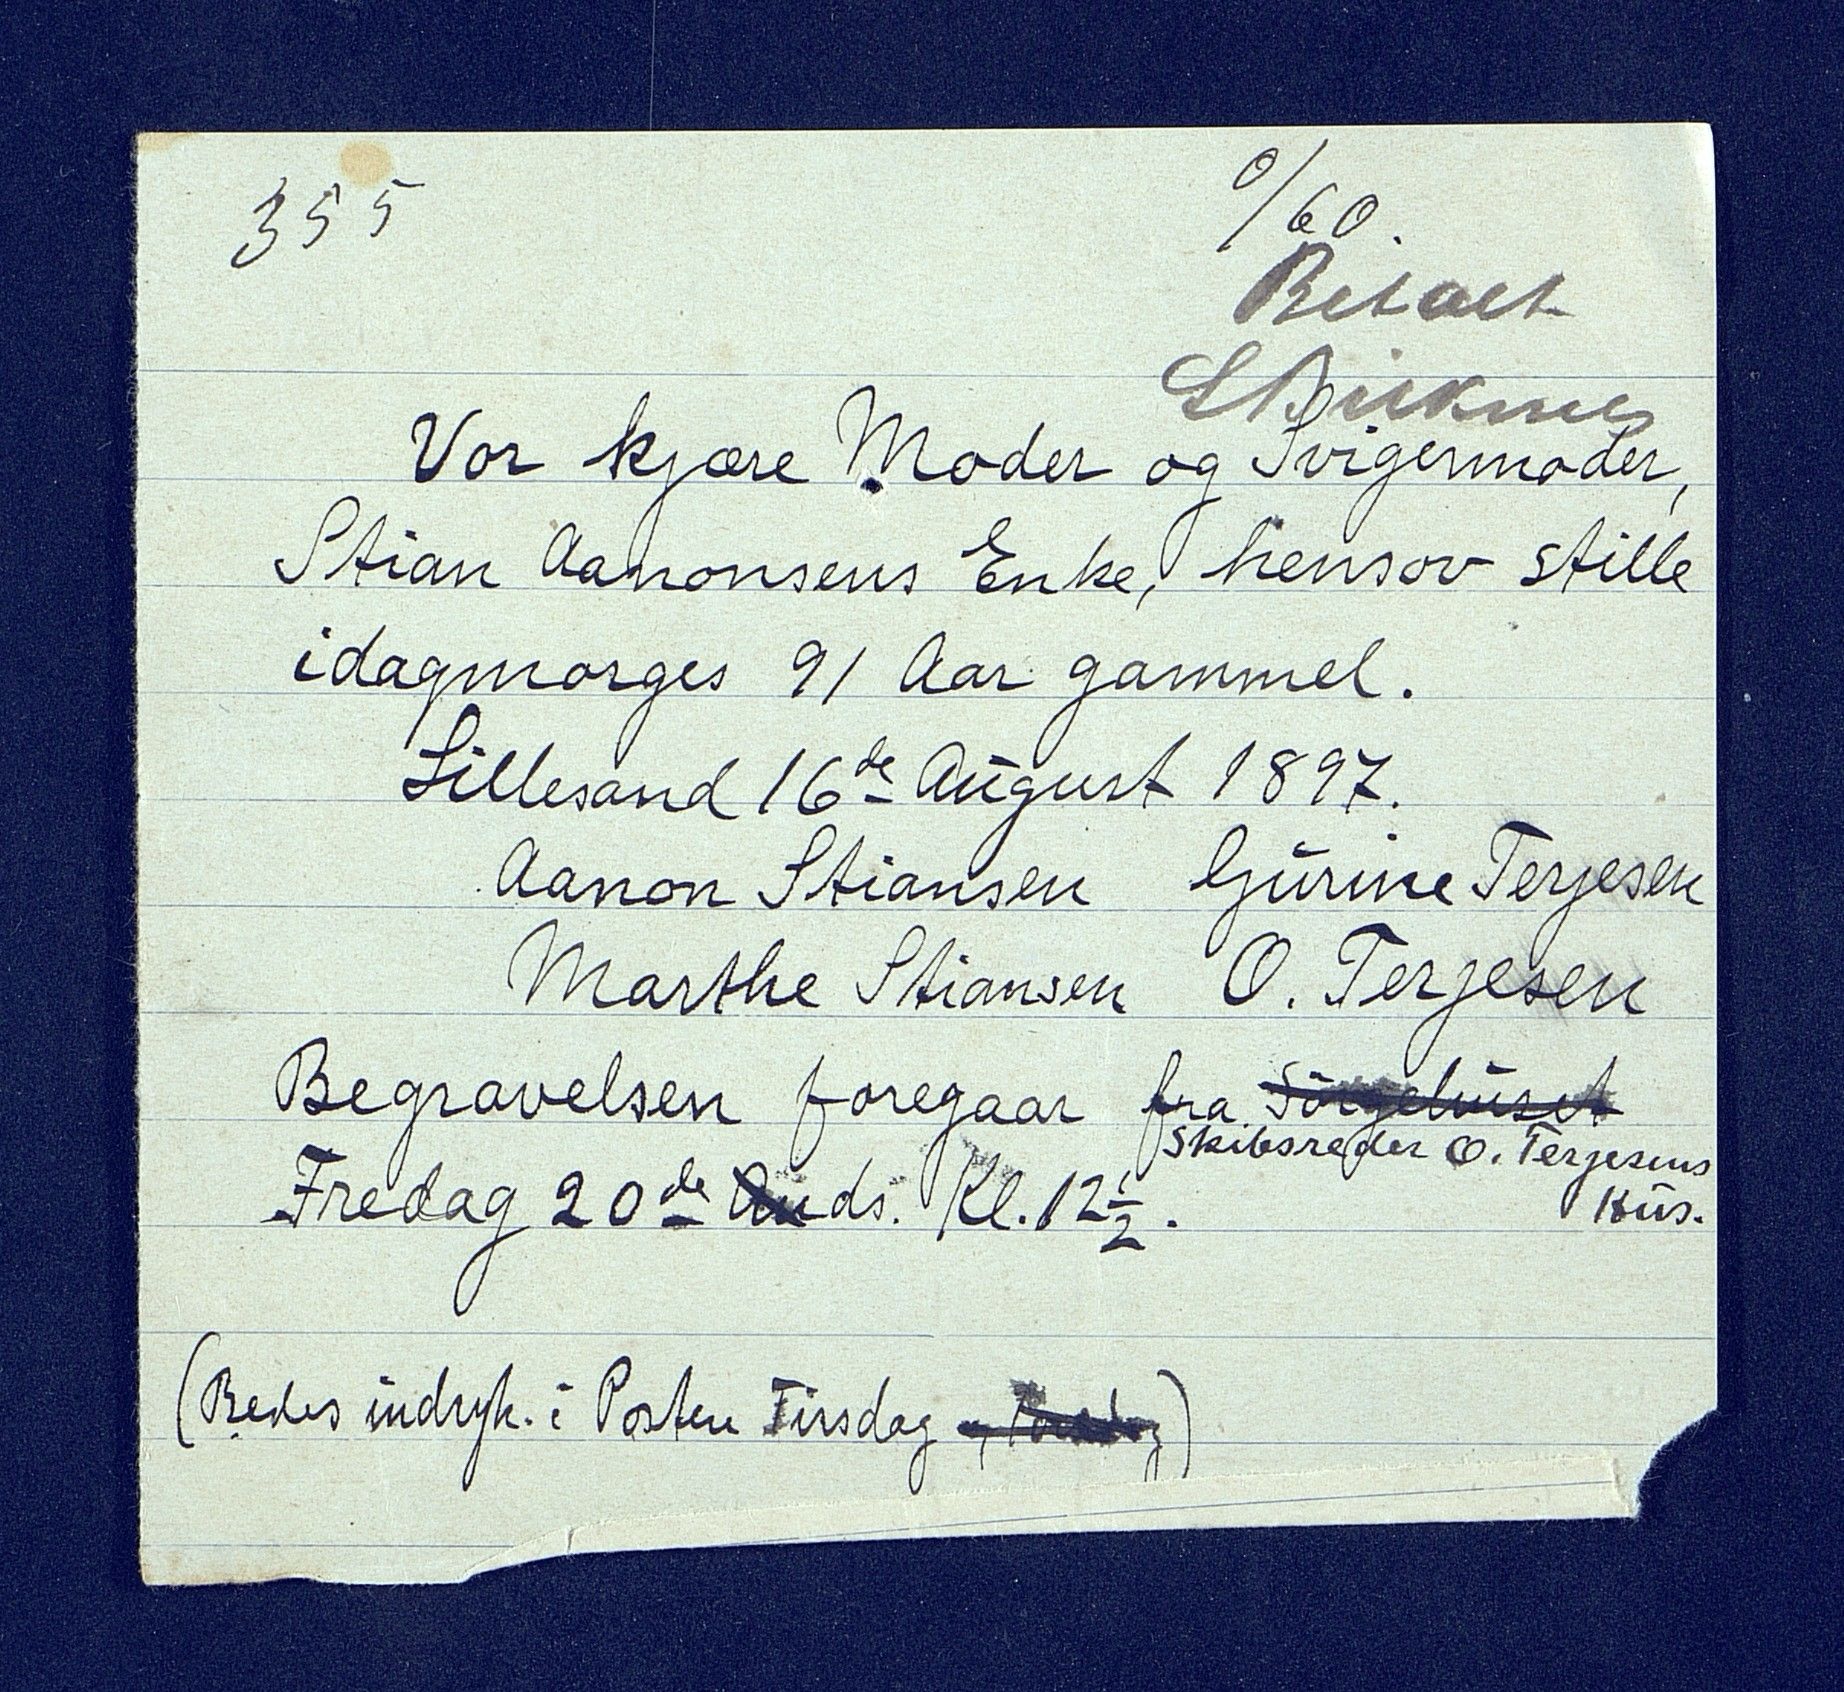 355
0/60.
Betalt
S Birknes
Vor kjære Moder og Svigermoder,
Stian Aanonsens Enke, hensov stille
idagmorges 91 Aar gammel.
Lillesand 16de August 1897.
Aanon Stiansen Gurine Terjesen
Marthe Stiansen O. Terjesen
Begravelsen foregaar fra Sørgehuset
Skibsreder O. Terjesens
Hus.
Fredag 20de Au ds. Kl. 12 1/2.
(Bedes indryk. i Posten Tirsdag)